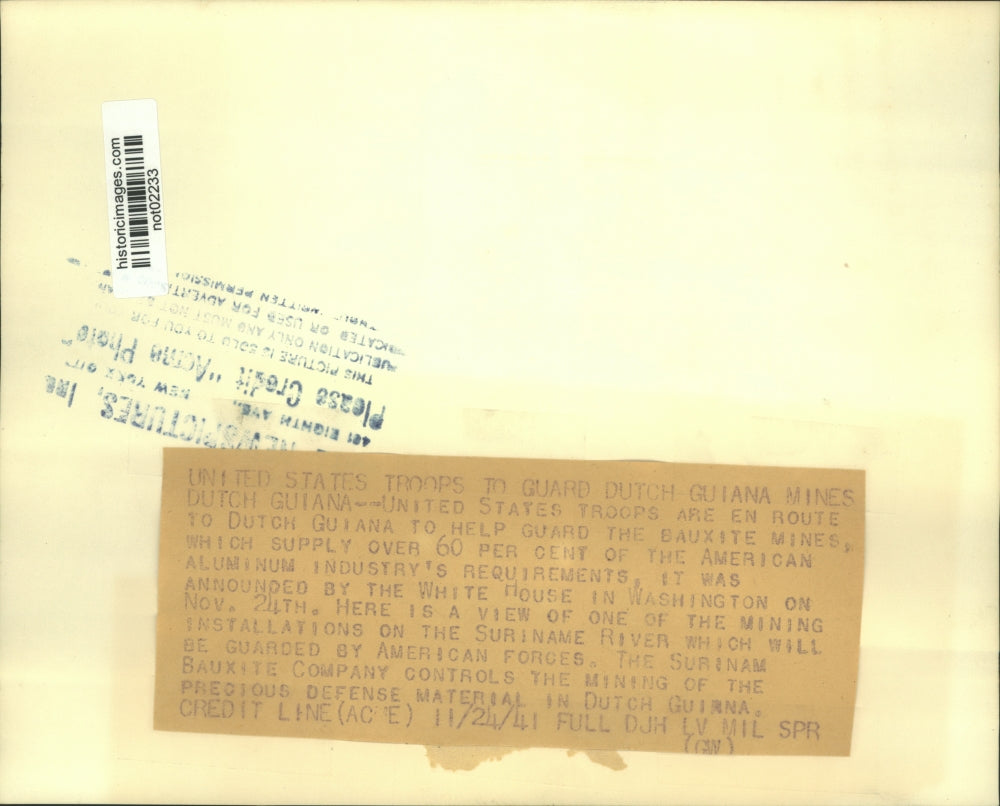 historicimages.com
not02233
NEWSPICTURES, INC.
461 EIGHTH AVE., NEW YORK CITY
Please Credit "Acme Photo"
THIS PICTURE IS SOLD TO YOU FOR YOUR
PUBLICATION ONLY AND MUST NOT
OR USED FOR
WRITTEN PERMISSION
UNITED STATES TROOPS TO GUARD DUTCH GUIANA MINES
DUTCH GUIANA--UNITED STATES TROOPS ARE EN ROUTE
TO DUTCH GUIANA TO HELP GUARD THE BAUXITE MINES,
WHICH SUPPLY OVER 60 PER CENT OF THE AMERICAN
ALUMINUM INDUSTRY'S REQUIREMENTS, IT WAS
ANNOUNCED BY THE WHITE HOUSE IN WASHINGTON ON
NOV. 24TH. HERE IS A VIEW OF ONE OF THE MINING
INSTALLATIONS ON THE SURINAME RIVER WHICH WILL
BE GUARDED BY AMERICAN FORCES. THE SURINAM
BAUXITE COMPANY CONTROLS THE MINING OF THE
PRECIOUS DEFENSE MATERIAL IN DUTCH GUIANA.
CREDIT LINE (ACME) 11/24/41 FULL DJH LV MIL SPR
(GW)